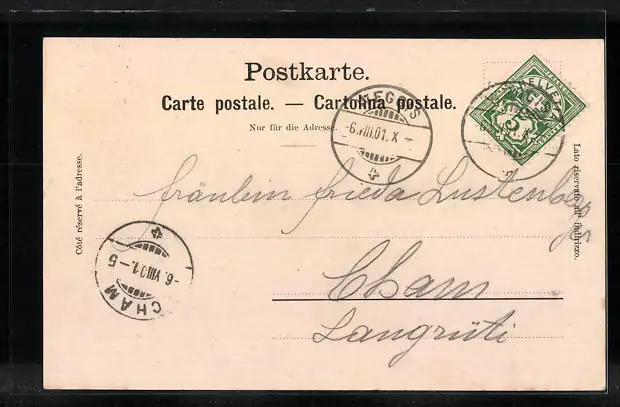 Postkarte.
Carte postale. — Cartolina postale.
Nur für die Adresse.
Côté réservé à l'adresse.
Lato riservato all' indirizzo.
HELVETIA
5
-6.VIII.01.X-
fräulein frieda Lustenberger
Cham
Langrüti
CHAM
-6.VIII.01.-5